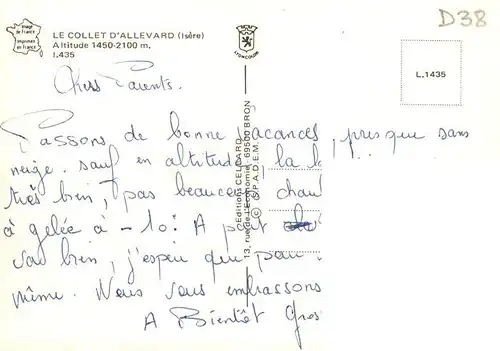 image
de France
imprimée
en France
LE COLLET D'ALLEVARD (Isère)
Altitude 1450-2100 m.
I.435
LYONCOLOR
D38
L.1435
Editions CELLARD
13, rue de l'Economie, 69500 BRON
© S.P.A.D.E.M.
Chers Parents.
Passons de bonne vacances, presque sans
neige. sauf en altitude, la
très bien, pas beaucoup
à gelée à - 10: A part
va bien, j'espère que pour
même. Nous vous embrassons
A Bientôt Gros